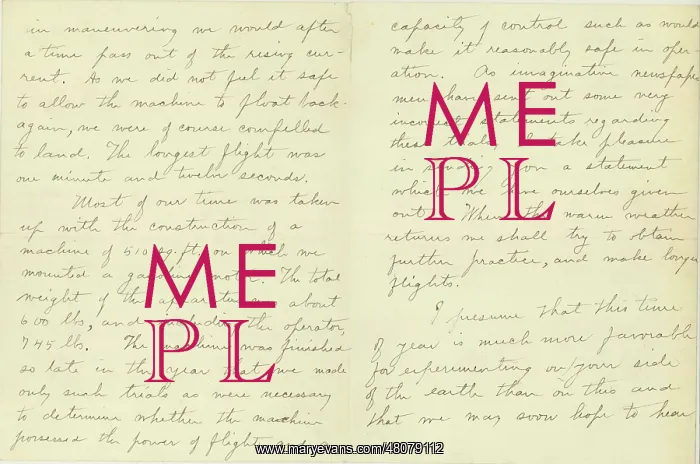 in maneuvering we would after
a time pass out of the rising cur-
rent. As we did not feel it safe
to allow the machine to float back-
again, we were of course compelled
to land. The longest flight was
one minute and twelve seconds.
Most of our time was taken
up with the construction of a
machine of 510 sq. ft. on which we
mounted a gasoline motor. The total
weight of the apparatus about
600 lbs, and including the operator,
745 lbs. The machine was finished
so late in the year that we made
only such trials as were necessary
to determine whether the machine
possessed the power of flight and a
capacity of control such as would
make it reasonably safe in oper-
ation. As imaginative newspaper
men have sent out some very
incorrect statements regarding
these trials, I take pleasure
in sending you a statement
which we have ourselves given
out. When the warm weather
returns we shall try to obtain
further practice, and make longer
flights.
I presume that this time
of year is much more favorable
for experimenting on your side
of the earth than on this and
that we may soon hope to hear
ME
PL
ME
PL
www.maryevans.com/48079112